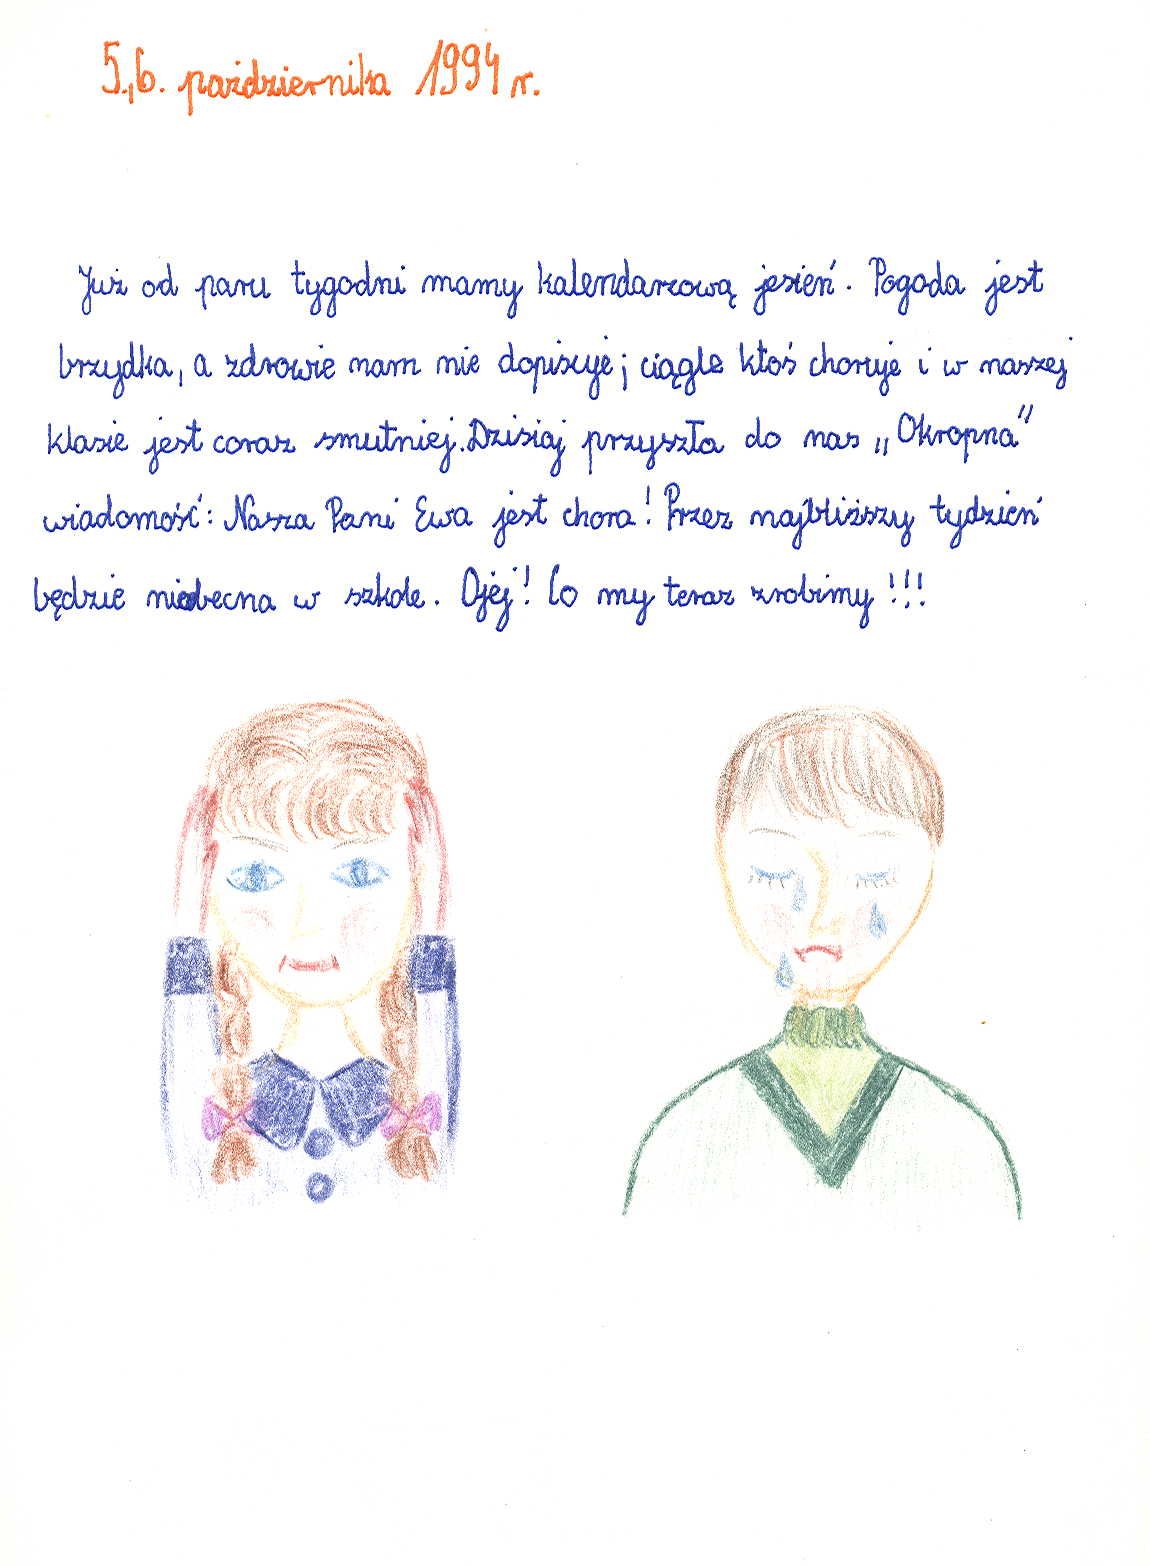 5.,6. października 1994 r.
Już od paru tygodni mamy kalendarzową jesień. Pogoda jest
brzydka, a zdrowie nam nie dopisuje; ciągle ktoś choruje i w naszej
klasie jest coraz smutniej. Dzisiaj przyszła do nas „Okropna”
wiadomość: Nasza Pani Ewa jest chora! Przez najbliższy tydzień
będzie nieobecna w szkole. Ojej! Co my teraz zrobimy!!!